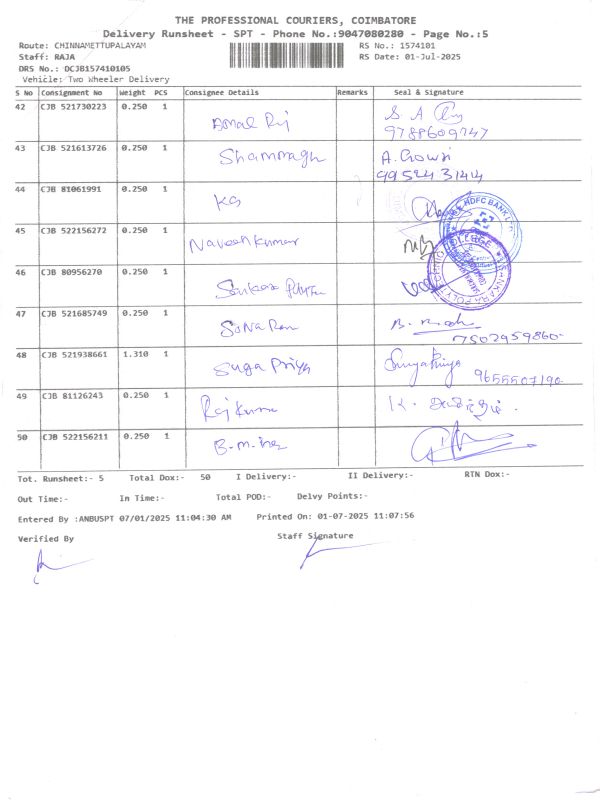 THE PROFESSIONAL COURIERS, COIMBATORE
Delivery Runsheet - SPT - Phone No.:9047080280 - Page No.:5
Route: CHINNAMETTUPALAYAM RS No.: 1574101
Staff: RAJA RS Date: 01-Jul-2025
DRS No.: DCJB157410105
Vehicle: Two Wheeler Delivery
S No Consignment No Weight PCS Consignee Details Remarks Seal & Signature
42 CJB 521730223 0.250 1 Amal Raj
9788609747
43 CJB 521613726 0.250 1 Shanmugh A. Gowri
9952431414
44 CJB 81061991 0.250 1 KG
HDFC BANK
45 CJB 522156272 0.250 1 Naveen Kumar
46 CJB 80956270 0.250 1 Sankara
47 CJB 521685749 0.250 1 Sona Ran
7502959860
48 CJB 521938661 1.310 1 Suga Priya Suryapriya
9655507190
49 CJB 81126243 0.250 1 Raj Kumar K.
50 CJB 522156211 0.250 1 B.M.
Tot. Runsheet:- 5 Total Dox:- 50 I Delivery:- II Delivery:- RTN Dox:-
Out Time:- In Time:- Total POD:- Delvy Points:-
Entered By :ANBUSPT 07/01/2025 11:04:30 AM Printed On: 01-07-2025 11:07:56
Verified By Staff Signature